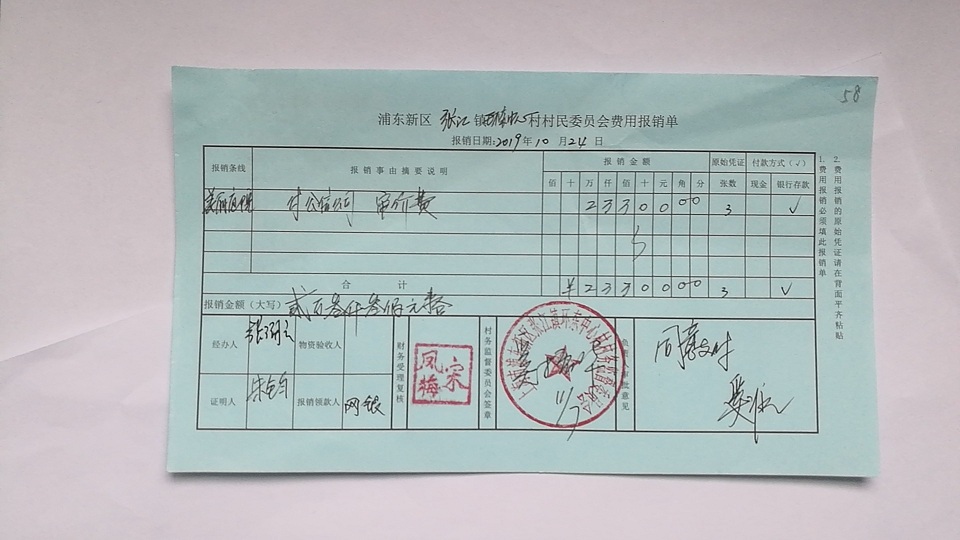 58
浦东新区 张江 镇 环东中心 村村民委员会费用报销单
报销日期:2019年10月24日
报销条线 报销事由摘要说明 报销金额 原始凭证 付款方式(√)
佰 十 万 仟 佰 十 元 角 分 张数 现金 银行存款
审价费 2 3 3 0 0 0 0 3 √
合计 ¥ 2 3 3 0 0 0 0 3 √
报销金额(大写) 贰万叁仟叁佰元整
经办人 物资验收人 财务受理复核 凤梅 宋 村务监督委员会签章 11/7 意见 同意支付
证明人 报销领款人 网银
1. 费用报销必须填此报销单
2. 费用报销的原始凭证请在背面平齐粘贴